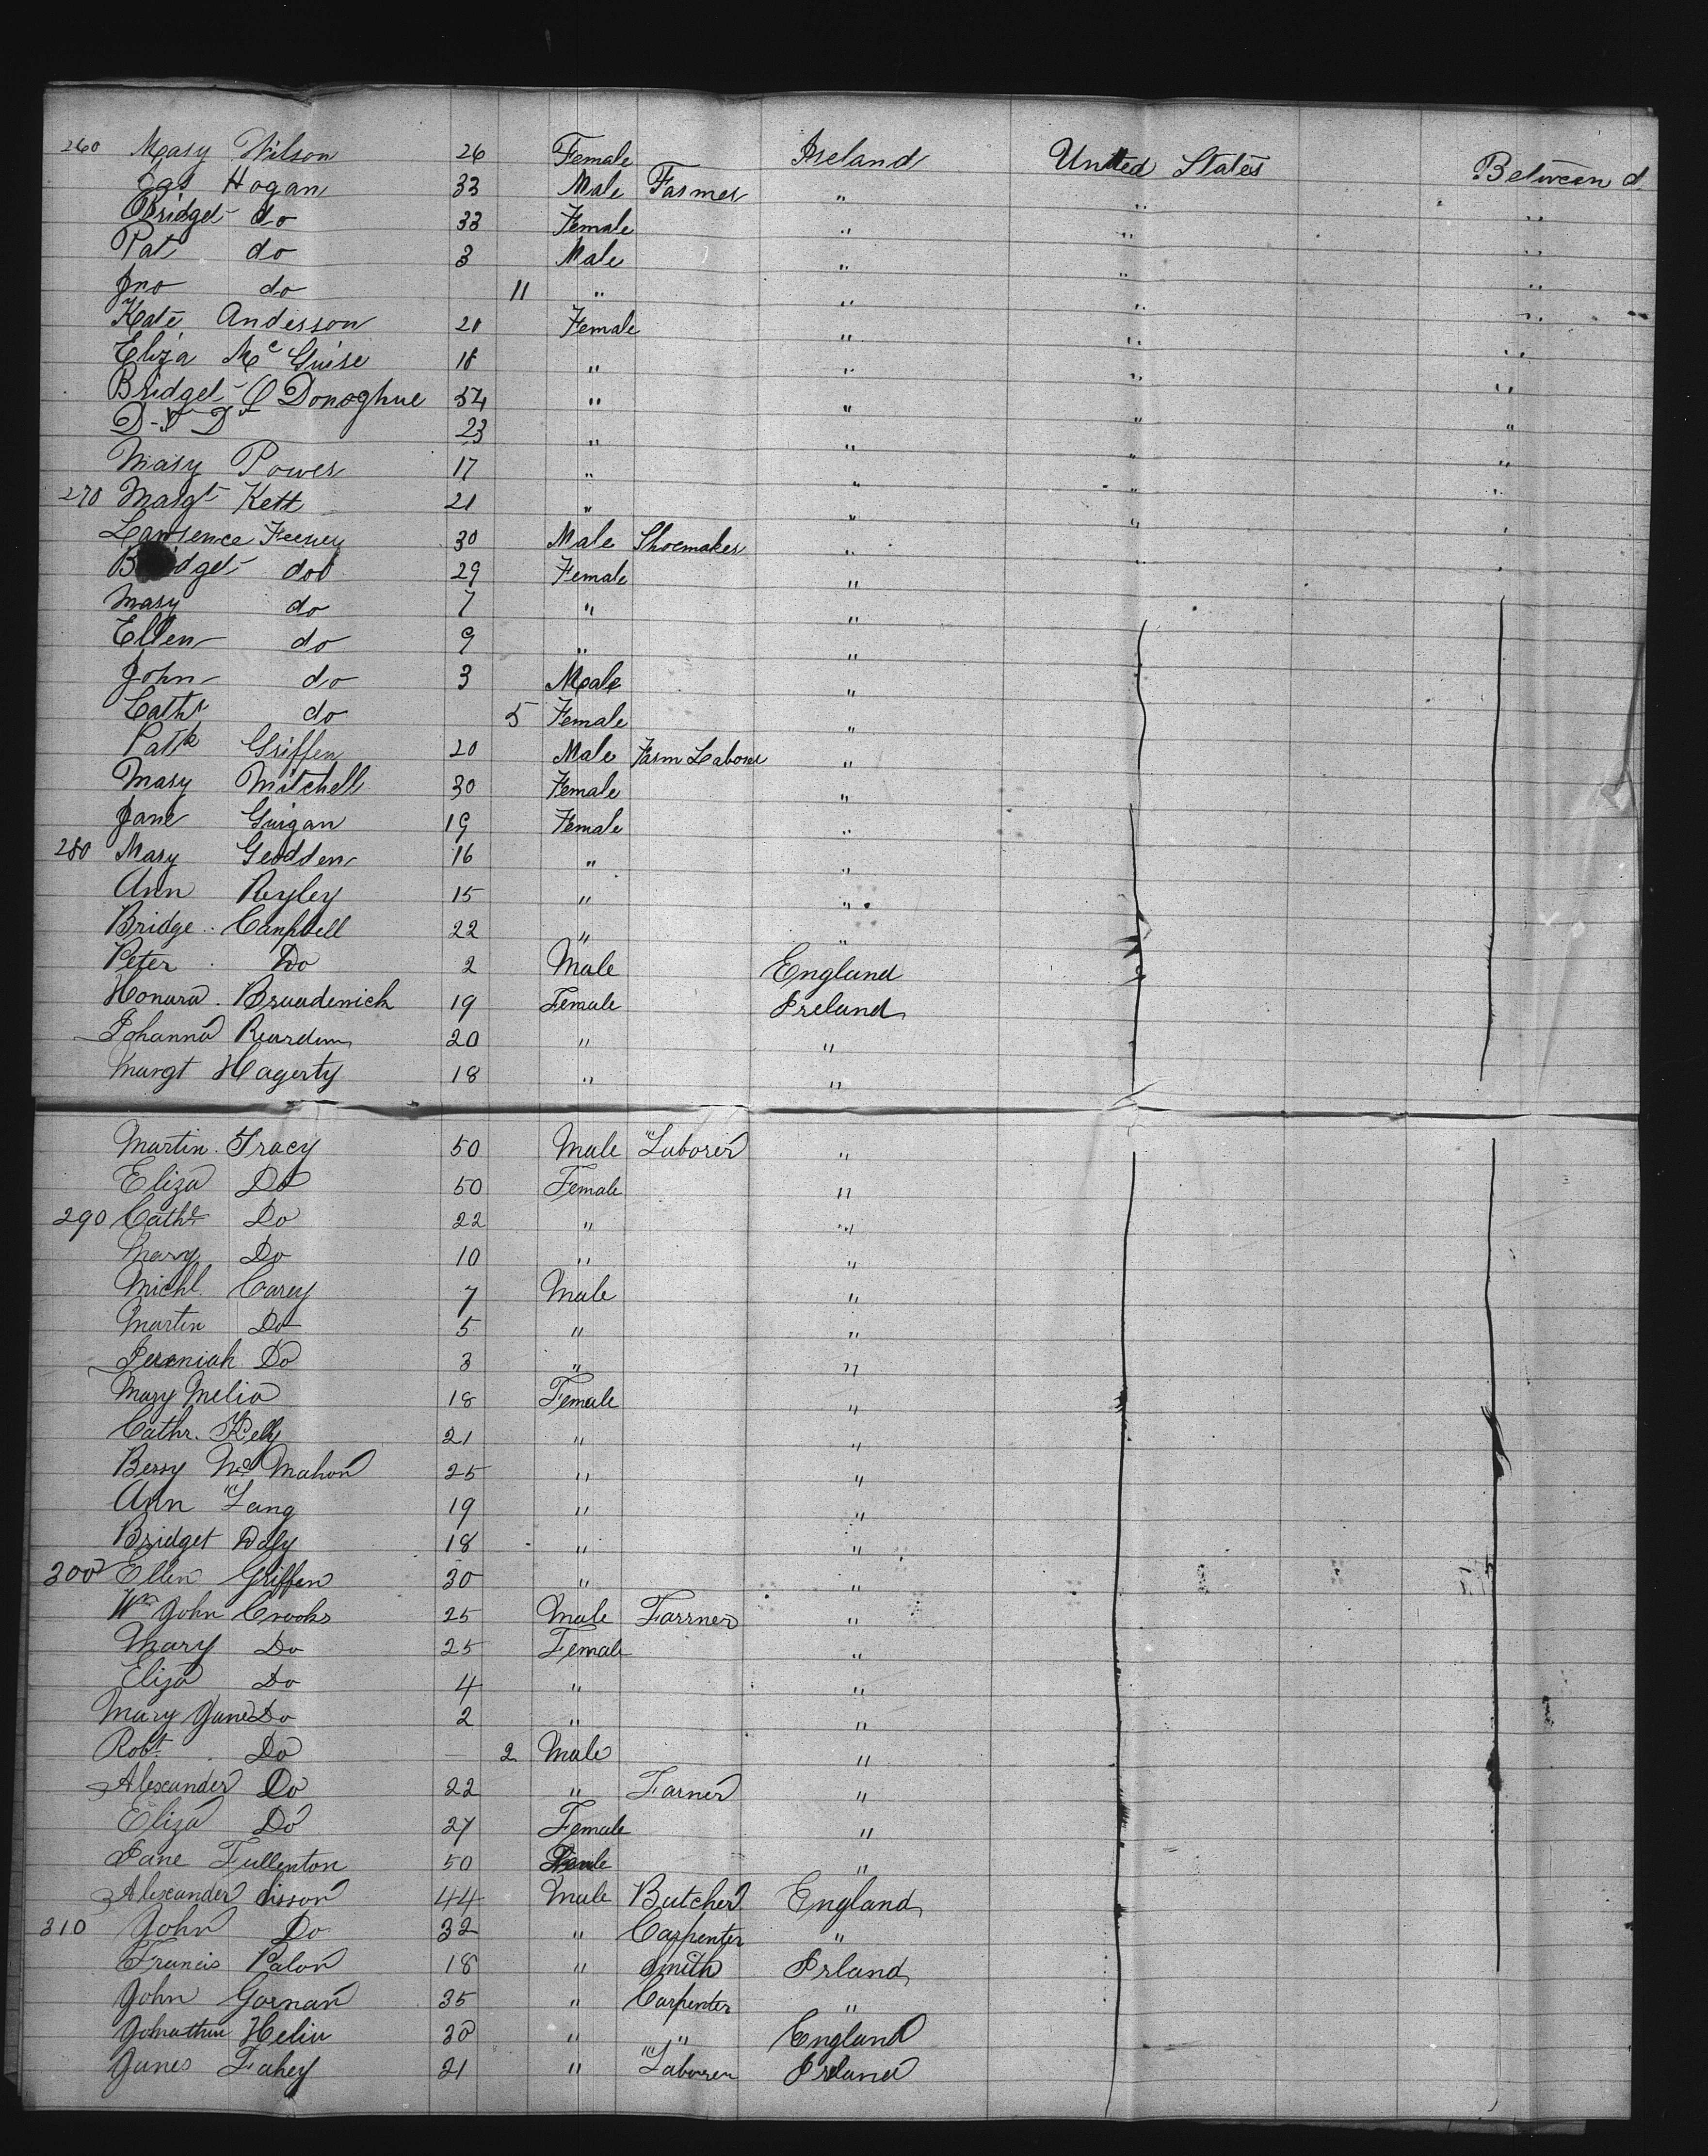 260 Mary Wilson 26 Female Ireland United States Between d
Pat Hogan 33 Male Farmer " " "
Bridget do 33 Female " " "
Pat do 3 Male " " "
Jno do 11 " " " "
Kate Anderson 21 Female " " "
Eliza Mc Guire 18 " " " "
Bridget O Donoghue 54 " " " "
23 " " " "
Mary Power 17 " " " "
270 Margt Kett 21 " " " "
Lawrence Feeney 30 Male Shoemaker " "
Bridget do 29 Female "
Mary do 7 " "
Ellen do 9 " "
John do 3 Male "
Cathr do 5 Female "
Patk Griffen 20 Male Farm Labour "
Mary Mitchell 30 Female "
Jane Guigan 19 Female "
280 Mary Geodden 16 " "
Ann Reyley 15 " "
Bridge Campbell 22 " "
Peter Do 2 Male England
Honara Bruadenich 19 Female Ireland
Johanna Reardun 20 " "
Margt Hagerty 18 " "
Martin Tracy 50 Male Laborer "
Eliza Do 50 Female "
290 Cathe Do 22 " "
Mary Do 10 " "
Michl Carey 7 Male "
Martin Do 5 " "
Jeremiah Do 3 " "
Mary Melia 18 Female "
Cathr. Kelly 21 " "
Bessy Mc Mahon 25 " "
Ann Lang 19 " "
Bridget Daly 18 " "
300 Ellen Griffen 30 " "
Wm John Crooks 25 Male Farmer "
Mary Do 25 Female "
Eliza Do 4 " "
Mary Jane Do 2 " "
Robt Do — 2 Male "
Alexander Do 22 " Farner "
Eliza Do 27 Female "
Jane Fullenton 50 "
Alexander 44 Male Butcher England
310 John Do 32 " Carpenter "
Francis Palon 18 " Smith Irland
John Gornan 35 " Carpenter "
Johnathan Helin 30 " " England
James Fahey 21 " Laborer Ireland